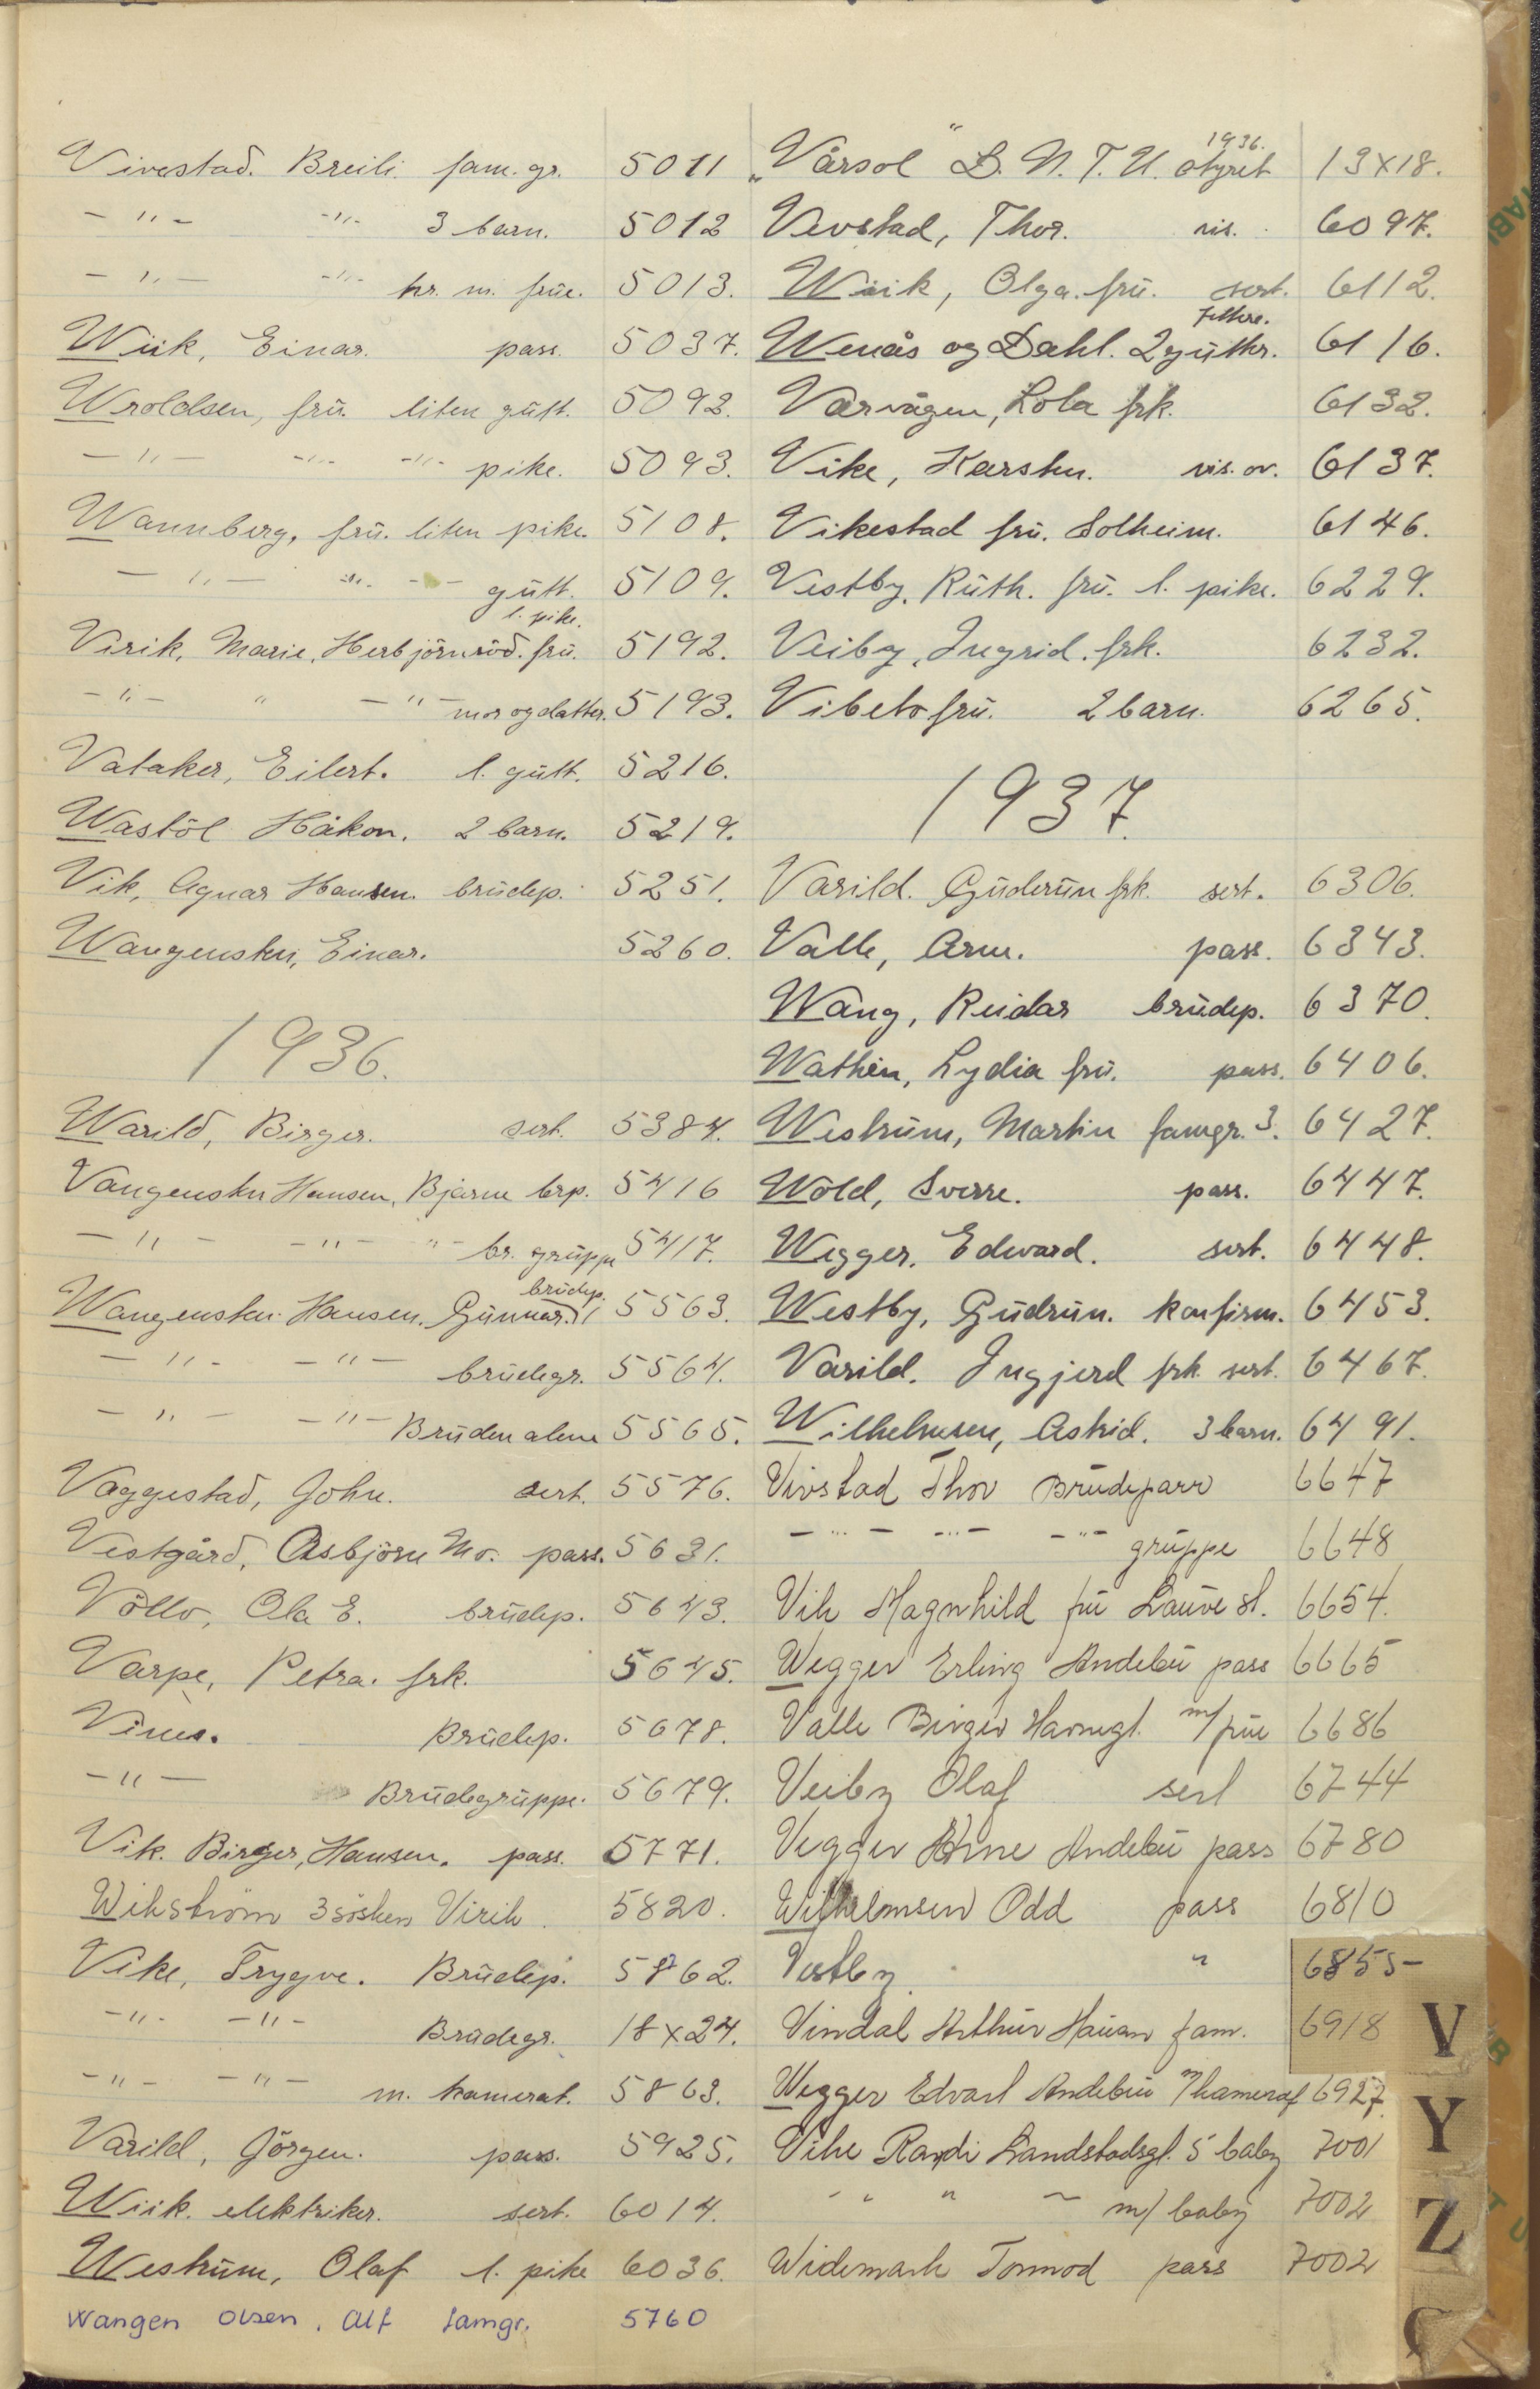 Vivestad. Breili. fam. gr. 5011
- " - -"- 3 barn. 5012
- " - -"- hr. m. frue. 5013.
Wiik, Einar. pass. 5037.
Wroldsen, frü. liten gütt. 5092.
- " - -"- -"- pike. 5093.
Wannberg, frü. liten pike. 5108.
- " - -"- - - gütt. 5109.
l. pike.
Virik, Marie, Herbjörnröd. frü. 5192.
- " - " - " - mor og datter. 5193.
Vataker, Eilert. l. gütt. 5216.
Wastöl Håkon. 2 barn. 5219.
Vik, Agnar Hansen. brüdep. 5251.
Wangensten, Einar. 5260.
1936.
Warild, Birger. sert. 5384.
Vangensten Hansen, Bjarne brp. 5416
- " - - " - " - br. grüppe 5417.
brüdep.
Wangensten Hansen. Günnar. 5563.
- " - - " - brüdegr. 5564.
- " - - " - Brüden alene 5565.
Vaggestad, John. sert. 5576.
Vestgård, Asbjörn Mo. pass. 5631.
Völlo, Ola E. brüdep. 5643.
Varpe, Petra. frk. 5645.
Vines. Brüdep. 5678.
- " - Brüdegrüppe. 5679.
Vik. Birger, Hansen. pass. 5771.
Wikström 3 sösken Virik. 5820.
Vike, Trygve. Brüdep. 5862.
- " - - " - Brüdegr. 18x24.
- " - - " - m. kamerat. 5863.
Varild, Jörgen. pass. 5925.
Wiik. elektriker. sert. 6014.
Westrüm, Olaf l. pike 6036.
Wangen Olsen, Alf famgr. 5760
1936.
"Vårsol" D. N. T. U. styret 13x18.
Vevstad, Thor. vis. 6097.
Wiik, Olga. frü. sert. 6112.
Wenås og Dahl. 2 gütter. 6116.
Varvågen, Lola frk. 6132.
Vike, Karsten. vis. ov. 6137.
Vikestad frü. Solheim. 6146.
Vestby, Rüth. frü. l. pike. 6229.
Veiby, Ingrid. frk. 6232.
Vibeto frü. 2 barn. 6265.
1937.
Varild. Güderün frk. sert. 6306.
Valle, Arne. pass. 6343.
Wang, Reidar brüdep. 6370.
Wathen, Lydia frü. pass. 6406.
Westrüm, Martin famgr. 3. 6427.
Wold, Sverre. pass. 6447.
Wegger, Edward. sert. 6448.
Westby, Güdrün. konfirm. 6453.
Varild. Ingjerd frk. sert. 6467.
Wilhelmsen, Astrid. 3 barn. 6491.
Vivstad Thor Brüdeparr 6647
- " - - " - - " - grüppe 6648
Vik Magnhild frü Lauve st. 6654.
Wegger Erling Andebü pass 6665
Valle Birger Havnegt. m/ frue 6686
Veiby Olaf sert 6744
Vegger Arne Andebü pass 6780
Wilhelmsen Odd pass 6810
Vestby. " 6855-
Vindal Arthür Hauan fam. 6918
Wegger Edvart Andebü m/ kamerat 6927.
Vike Randi Landstadsgt. 5 baby 7001
" " " " m/ baby 7002
Widemark Tormod pass 7002
V
Y
Z